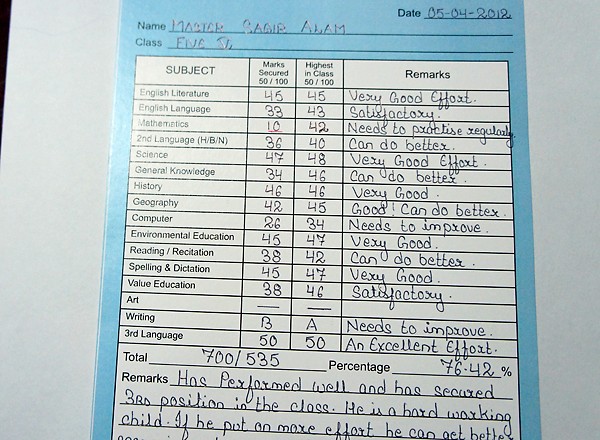 Date 05-04-2012
Name MASTER SAQIB ALAM
Class FIVE
SUBJECT Marks Secured 50 / 100 Highest in Class 50 / 100 Remarks
English Literature 45 45 Very Good Effort.
English Language 33 43 Satisfactory.
Mathematics 10 42 Needs to practise regularly.
2nd Language (H/B/N) 36 40 Can do better.
Science 47 48 Very Good Effort.
General Knowledge 34 46 Can do better.
History 46 46 Very Good.
Geography 42 45 Good! Can do better.
Computer 26 34 Needs to improve.
Environmental Education 45 47 Very Good.
Reading / Recitation 38 42 Can do better.
Spelling & Dictation 45 47 Very Good.
Value Education 38 46 Satisfactory.
Art — —
Writing B A Needs to improve.
3rd Language 50 50 An Excellent Effort.
Total 700/535 Percentage 76.42 %
Remarks Has Performed well and has secured
3RD position in the class. He is a hard working
child. If he put on more effort he can get better